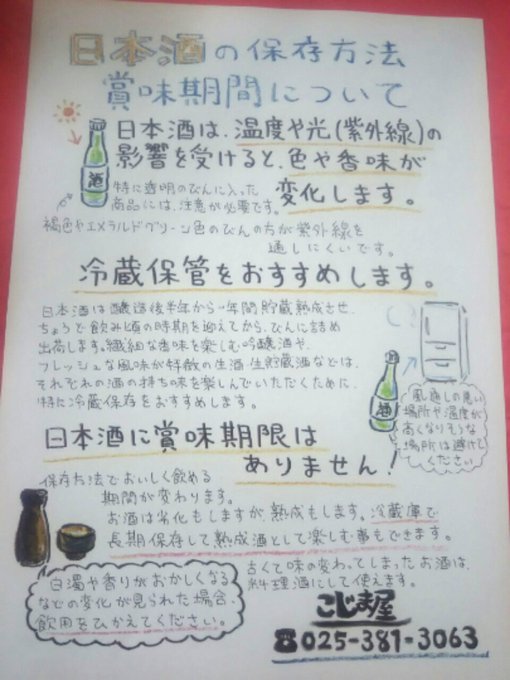 日本酒の保存方法
賞味期間について
日本酒は、温度や光(紫外線)の
影響を受けると、色や香味が
変化します。
特に透明のびんに入った
商品には、注意が必要です。
褐色やエメラルドグリーン色のびんの方が紫外線を
通しにくいです。
酒
冷蔵保管をおすすめします。
日本酒は醸造後半年から一年間貯蔵熟成させ、
ちょうど飲み頃の時期を迎えてから、びんに詰め
出荷します。繊細な香味を楽しむ吟醸酒や、
フレッシュな風味が特徴の生酒・生貯蔵酒などは、
それぞれの酒の持ち味を楽しんでいただくために、
特に冷蔵保存をおすすめします。
酒
風通しの悪い
場所や温度が
高くなりそうな
場所は避けて
ください
日本酒に賞味期限は
ありません!
保存方法でおいしく飲める
期間が変わります。
お酒は劣化もしますが、熟成もします。冷蔵庫で
長期保存して熟成酒として楽しむ事もできます。
古くて味の変わってしまったお酒は、
料理酒にして使えます。
白濁や香りがおかしくなる
などの変化が見られた場合、
飲用をひかえてください。
こじま屋
☎025-381-3063